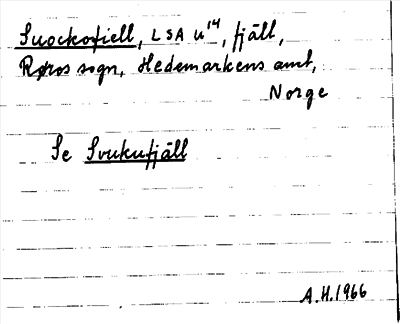 Suockofiell, LSA u¹⁴, fjäll,
Røros sogn, Hedemarkens amt,
Norge
Se Svukufjäll
A.H. 1966